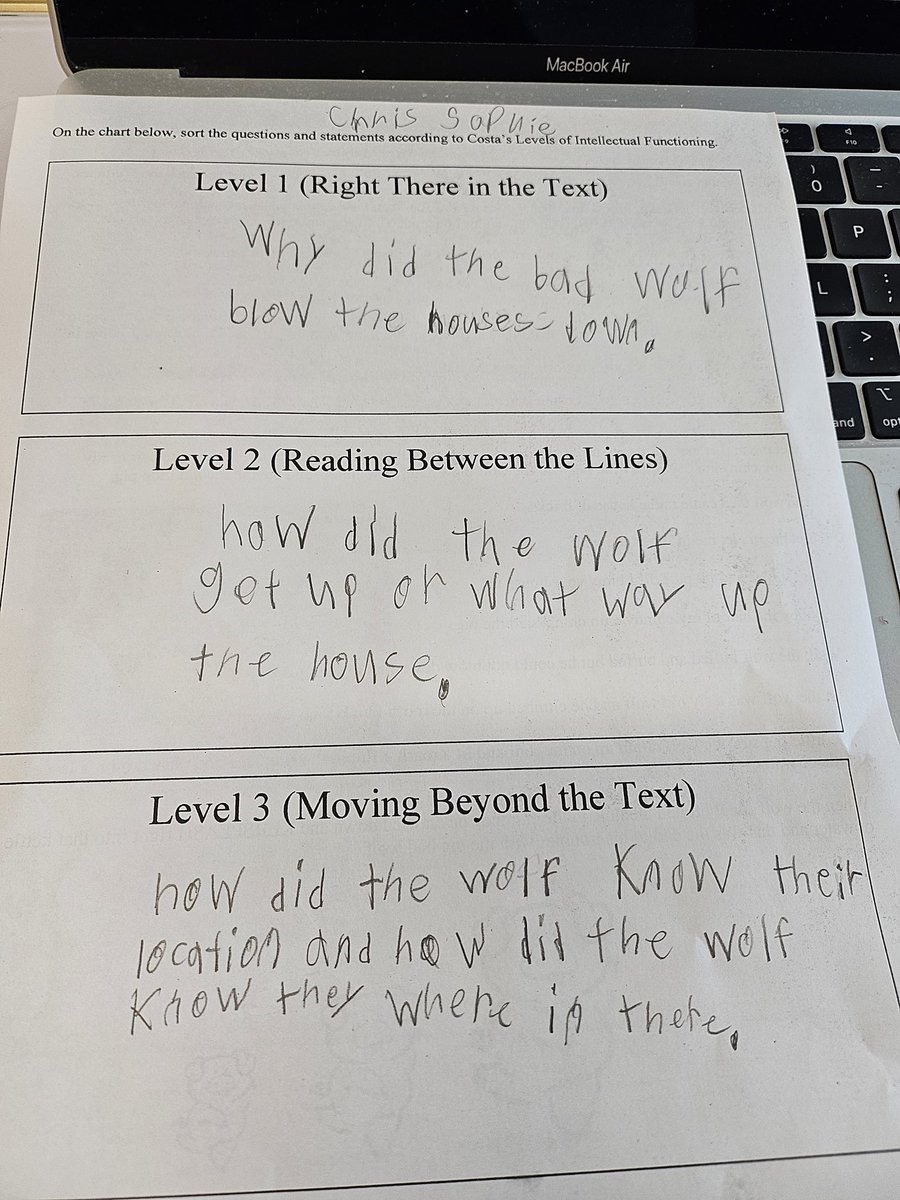 MacBook Air
Chris Sophie
On the chart below, sort the questions and statements according to Costa's Levels of Intellectual Functioning.
Level 1 (Right There in the Text)
Why did the bad wolf
blow the houses down.
Level 2 (Reading Between the Lines)
how did the wolf
get up or what way up
the house.
Level 3 (Moving Beyond the Text)
how did the wolf know their
location and how did the wolf
know they where in there.
F10
)
0
-
P
L
:
;
>
.
and
opt